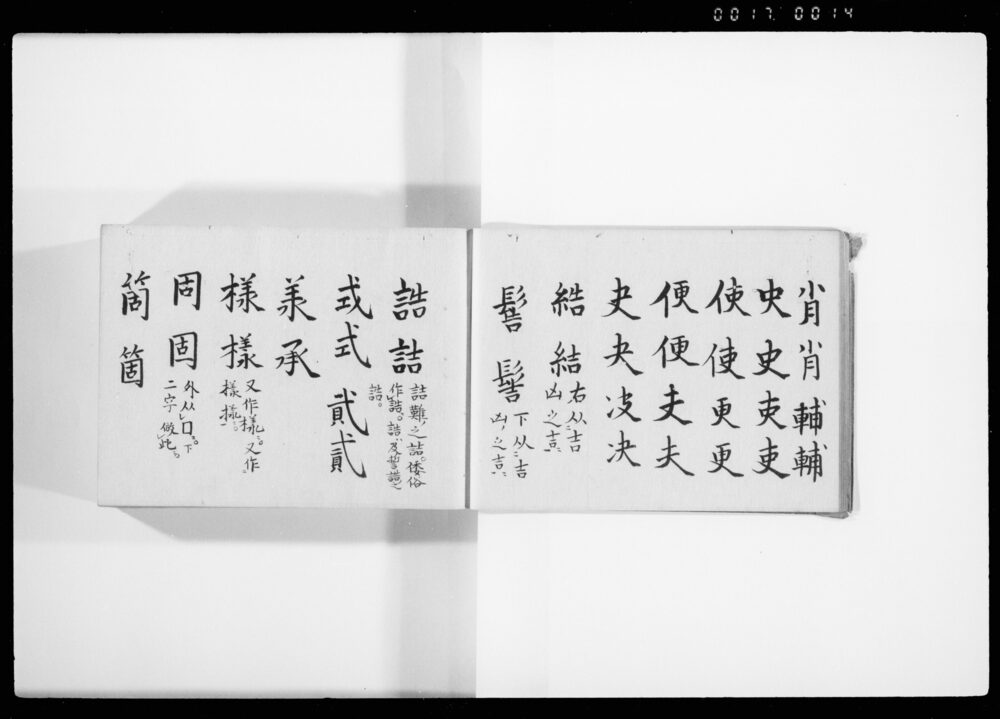 0017 0014
肖肖輔輔
史史吏吏
使使更更
便便夫夫
夬夬决決
結結 右从吉
凶之吉
髻髻 下从吉
凶之吉
誥詰 詰難之詰倭俗
作誥誥及誓誥之
誥
式式貳貳
承承
様樣 又作樣又作
様様
固固 外从囗下
二字倣此
箇箇